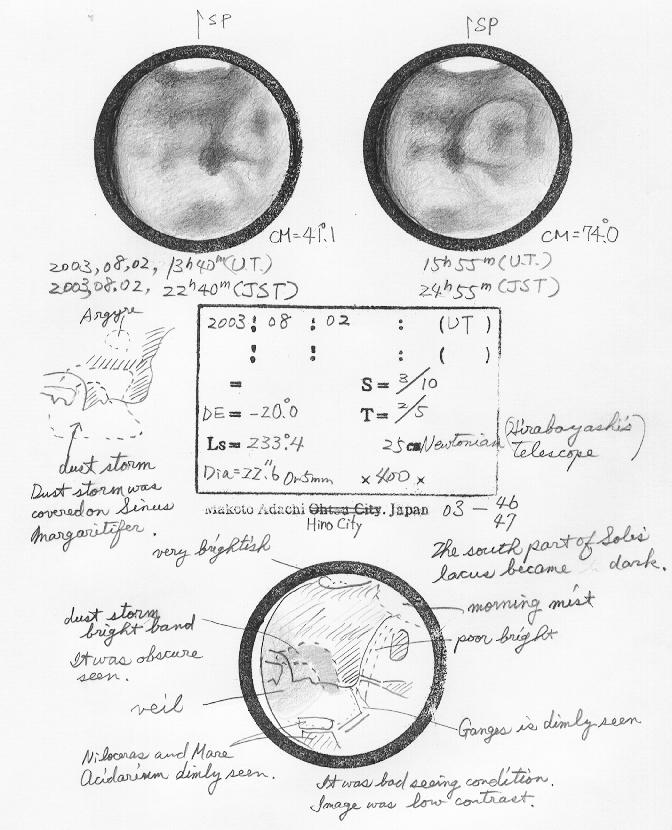 SP
SP
CM=41°.1
CM=74°.0
2003,08,02, 13h40m(U.T.)
2003,08.02, 22h40m(JST)
15h55m(U.T.)
24h55m(JST)
Argyre
dust storm
Dust storm was
covered on Sinus
Margaritifer.
2003: 08 : 02 : (UT)
: : : ( )
= S=3/10
DE=-20°.0 T=2/5
Ls=233°.4 25cm Newtonian (Hirabayashi's
telescope)
Dia=22".6 Or5mm ×400×
Makoto Adachi Ohtsu City. Japan 03-46
47
Hino City
very brightish
The south part of Solis
lacus became dark.
dust storm
bright band
It was obscure
seen.
veil
morning mist
poor bright
Ganges is dimly seen
Niloceras and Mare
Acidarium dimly seen.
It was bad seeing condition.
Image was low contrast.